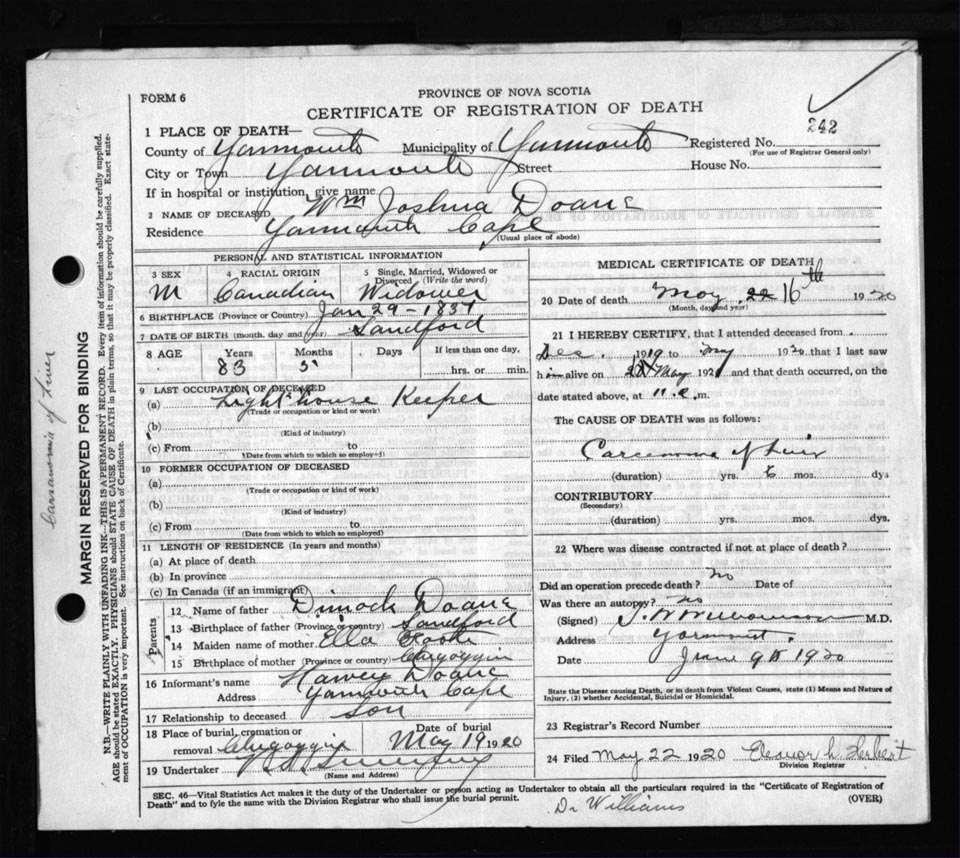 PROVINCE OF NOVA SCOTIA
CERTIFICATE OF REGISTRATION OF DEATH
FORM 6
242
1 PLACE OF DEATH—
County of Yarmouth Municipality of Yarmouth Registered No.
(For use of Registrar General only)
City or Town Yarmouth Street House No.
If in hospital or institution, give name
2 NAME OF DECEASED Wm Joshua Doane
Residence Yarmouth Cape
(Usual place of abode)
PERSONAL AND STATISTICAL INFORMATION
3 SEX 4 RACIAL ORIGIN 5 Single, Married, Widowed or Divorced (Write the word)
M Canadian Widower
6 BIRTHPLACE (Province or Country) Jan 29-1837
7 DATE OF BIRTH (month, day and year) Sandford
8 AGE Years Months Days If less than one day,
83 5 hrs. or min.
9 LAST OCCUPATION OF DECEASED
(a) Light house Keeper
(Trade or occupation or kind of work)
(b)
(Kind of industry)
(c) From to
(Date from which to which so employed)
10 FORMER OCCUPATION OF DECEASED
(a)
(Trade or occupation or kind of work)
(b)
(Kind of industry)
(c) From to
(Date from which to which so employed)
11 LENGTH OF RESIDENCE (In years and months)
(a) At place of death
(b) In province
(c) In Canada (if an immigrant)
Parents
12 Name of father Dimock Doane
13 Birthplace of father (Province or country) Sandford
14 Maiden name of mother Ella
15 Birthplace of mother (Province or country) Chegoggin
16 Informant's name Harvey Doane
Address Yarmouth Cape
17 Relationship to deceased son
18 Place of burial, cremation or removal Chegoggin Date of burial May 19 1920
19 Undertaker
(Name and Address)
MEDICAL CERTIFICATE OF DEATH
20 Date of death May 22 16th 1920
(Month, day and year)
21 I HEREBY CERTIFY, that I attended deceased from
Dec. 1919 to May 1920 that I last saw
him alive on May 192 and that death occurred, on the
date stated above, at 11 m.
The CAUSE OF DEATH was as follows:
Carcenoma of Liver
(duration) yrs. 6 mos. dys
CONTRIBUTORY
(Secondary)
(duration) yrs. mos. dys.
22 Where was disease contracted if not at place of death?
Did an operation precede death? no Date of
Was there an autopsy? no
(Signed) M.D.
Address Yarmouth.
Date June 9th 1920
State the Disease causing Death, or in death from Violent Causes, state (1) Means and Nature of
Injury, (2) whether Accidental, Suicidal or Homicidal.
23 Registrar's Record Number
24 Filed May 22 1920 Eleanor h. Herbert
Division Registrar
SEC. 46—Vital Statistics Act makes it the duty of the Undertaker or person acting as Undertaker to obtain all the particulars required in the "Certificate of Registration of
Death" and to fyle the same with the Division Registrar who shall issue the burial permit.
(OVER)
Dr Williams
Carsanomia of Liver
MARGIN RESERVED FOR BINDING
N.B.—WRITE PLAINLY WITH UNFADING INK—THIS IS A PERMANENT RECORD. Every item of information should be carefully supplied.
AGE should be stated EXACTLY. PHYSICIANS should STATE CAUSE OF DEATH in plain terms, so that it may be properly classified. Exact state-
ment of OCCUPATION is very important. See instructions on back of Certificate.